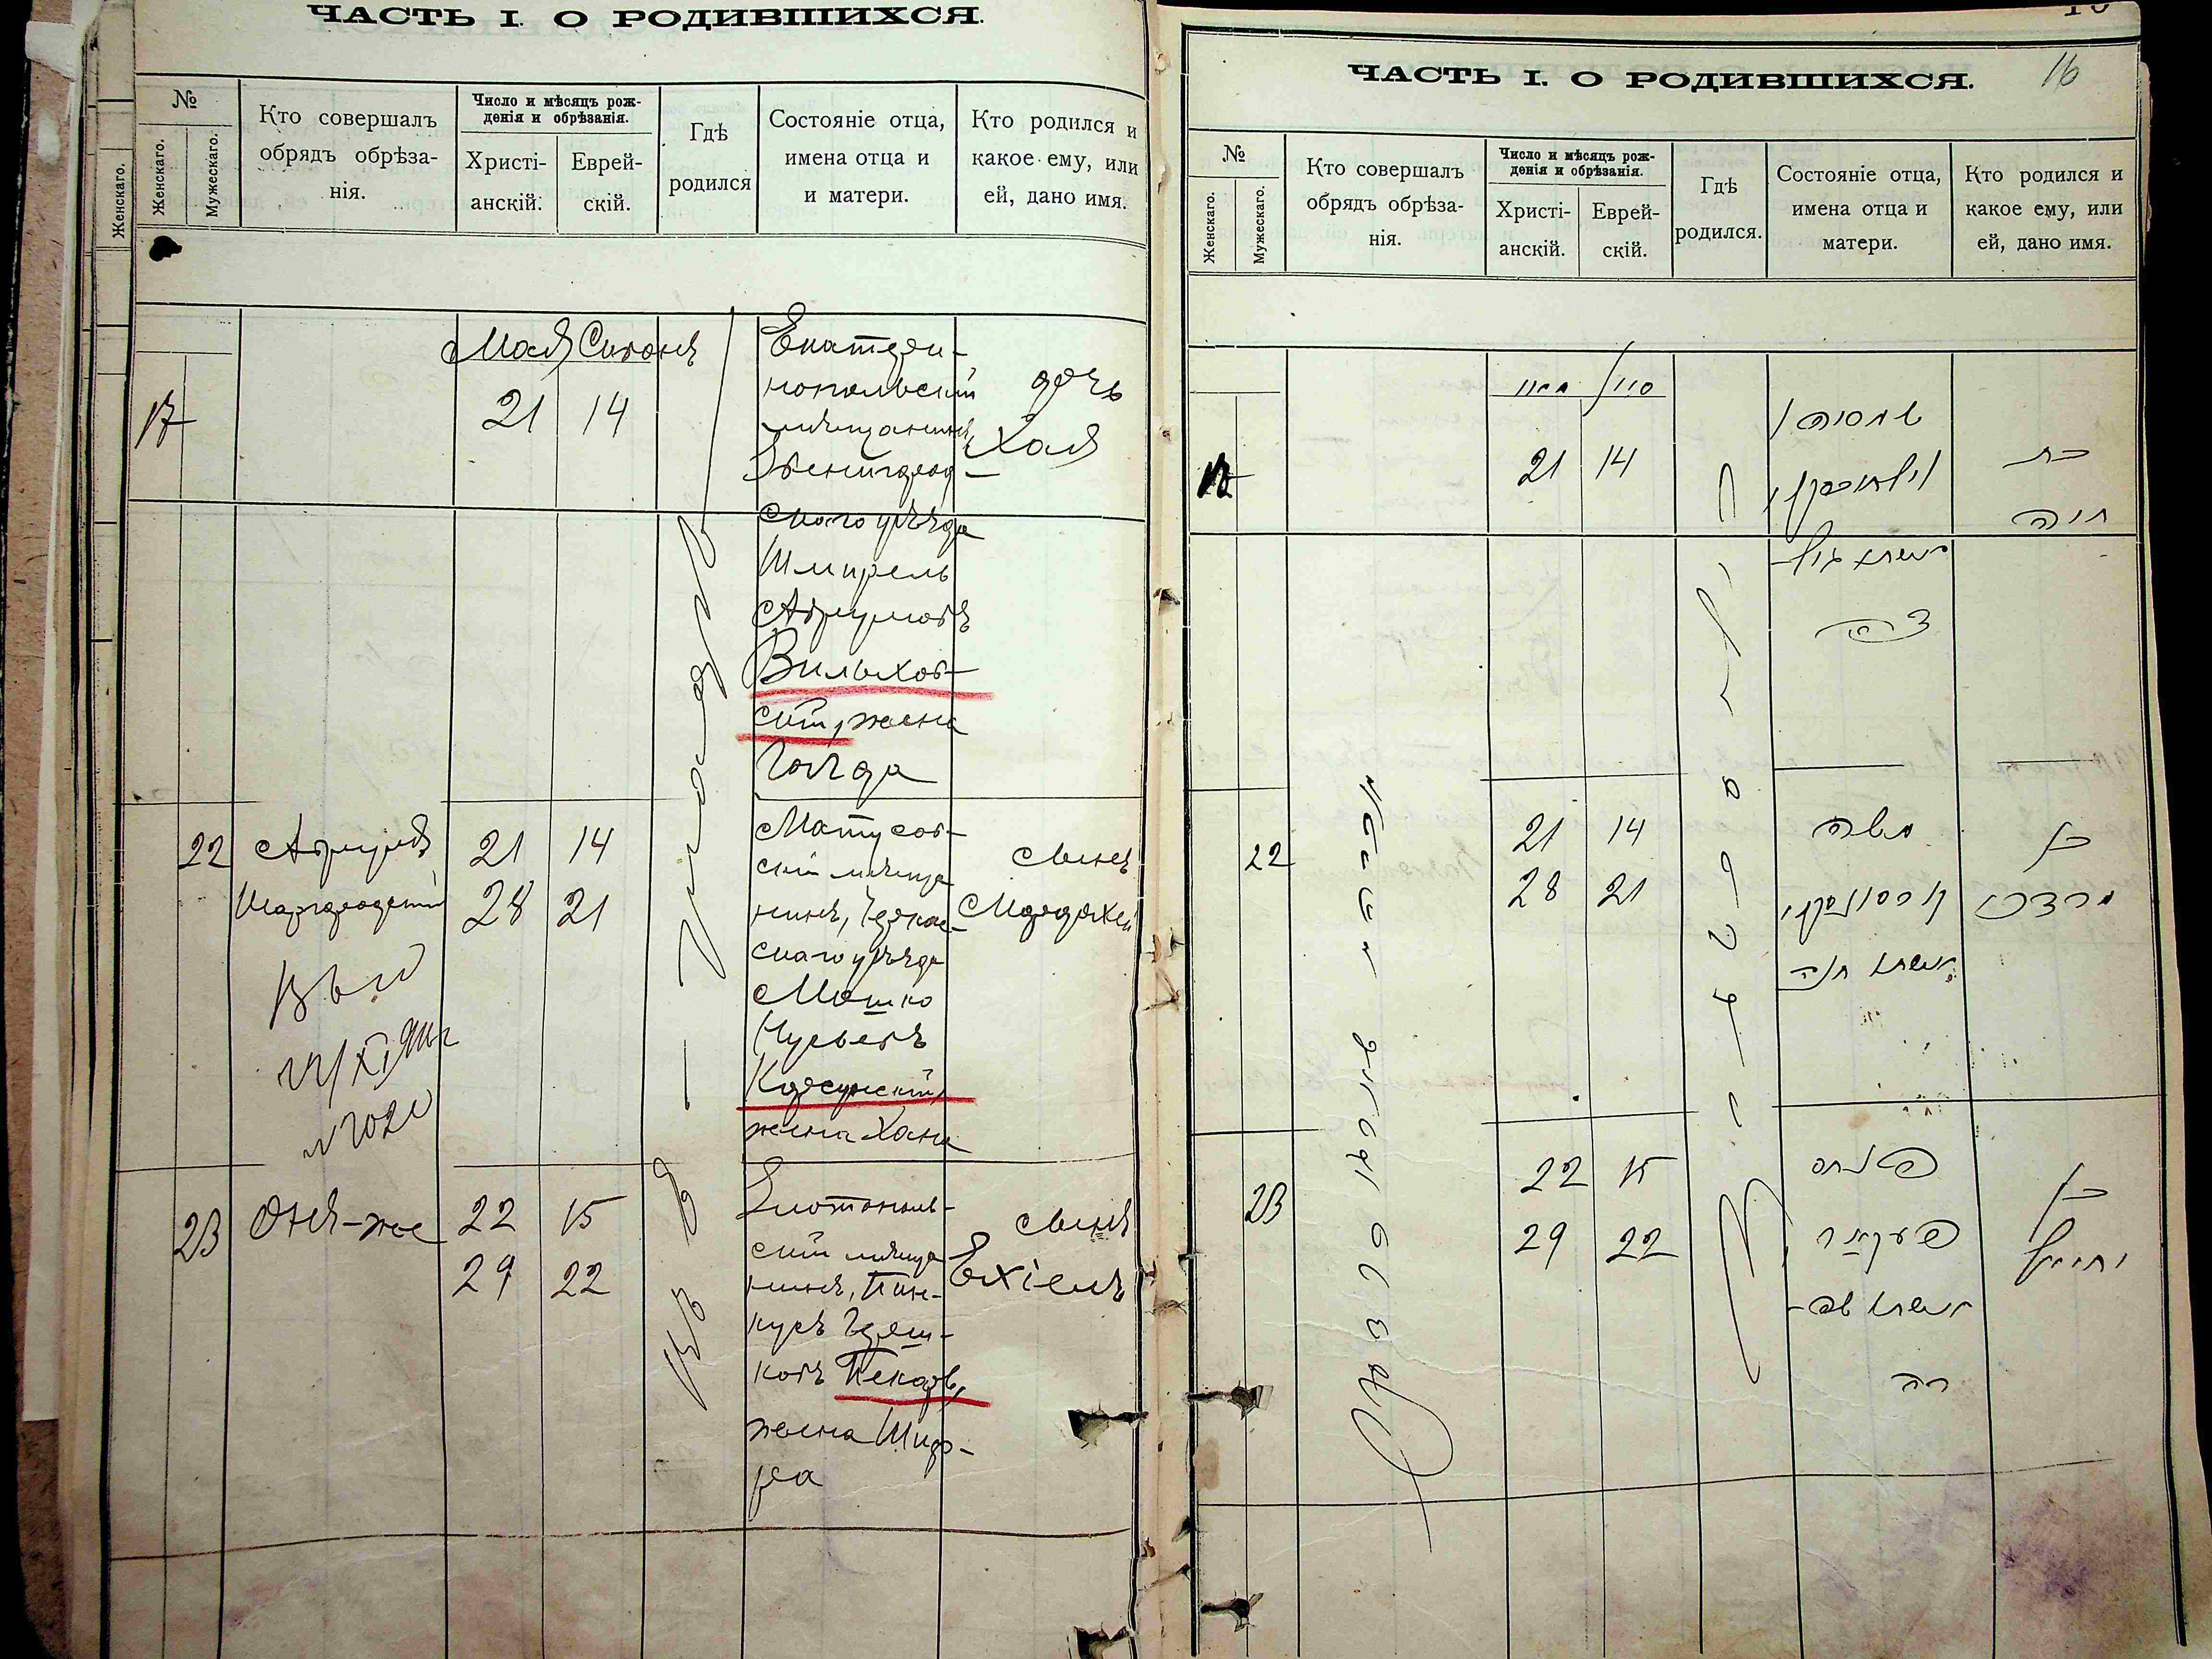 ЧАСТЬ I. О РОДИВШИХСЯ.
№
Женскаго.
Женскаго.
Мужескаго.
Кто совершалъ
обрядъ обрѣза-
нія.
Число и мѣсяцъ рож-
денія и обрѣзанія.
Христі-
анскій.
Еврей-
скій.
Гдѣ
родился
Состояніе отца,
имена отца и
и матери.
Кто родился и
какое ему, или
ей, дано имя.
Мая Сивона
17
21 14
Екатери-
нопольскій
мѣщанинъ
Звенигород-
скаго уѣзда
Шмирель
Абрумовъ
Вильхов-
скій, жена
Голда
дочь
Хая
22
Абрумъ
Шаргородскій
21 14
28 21
Матусов-
скій мѣща
нинъ, Черкас-
скаго уѣзда
Мошко
Нусьевъ
Корсунскій,
жена Хана
сынъ
Мордхей
23
Онъ-же
22 15
29 22
Злотополь-
скій мѣща
нинъ, Пин-
кусъ Герш-
ковъ Пекарь,
жена Шиф-
ра
сынъ
Ехіель
ЧАСТЬ I. О РОДИВШИХСЯ.
16
№
Женскаго.
Мужескаго.
Кто совершалъ
обрядъ обрѣза-
нія.
Число и мѣсяцъ рож-
денія и обрѣзанія.
Христі-
анскій.
Еврей-
скій.
Гдѣ
родился.
Состояніе отца,
имена отца и
матери.
Кто родился и
какое ему, или
ей, дано имя.
17
21 14
בת
חיה
22
21 14
28 21
משה
בן
מרדכי
23
22 15
29 22
פנחס
פעקאר
בן
יחיאל